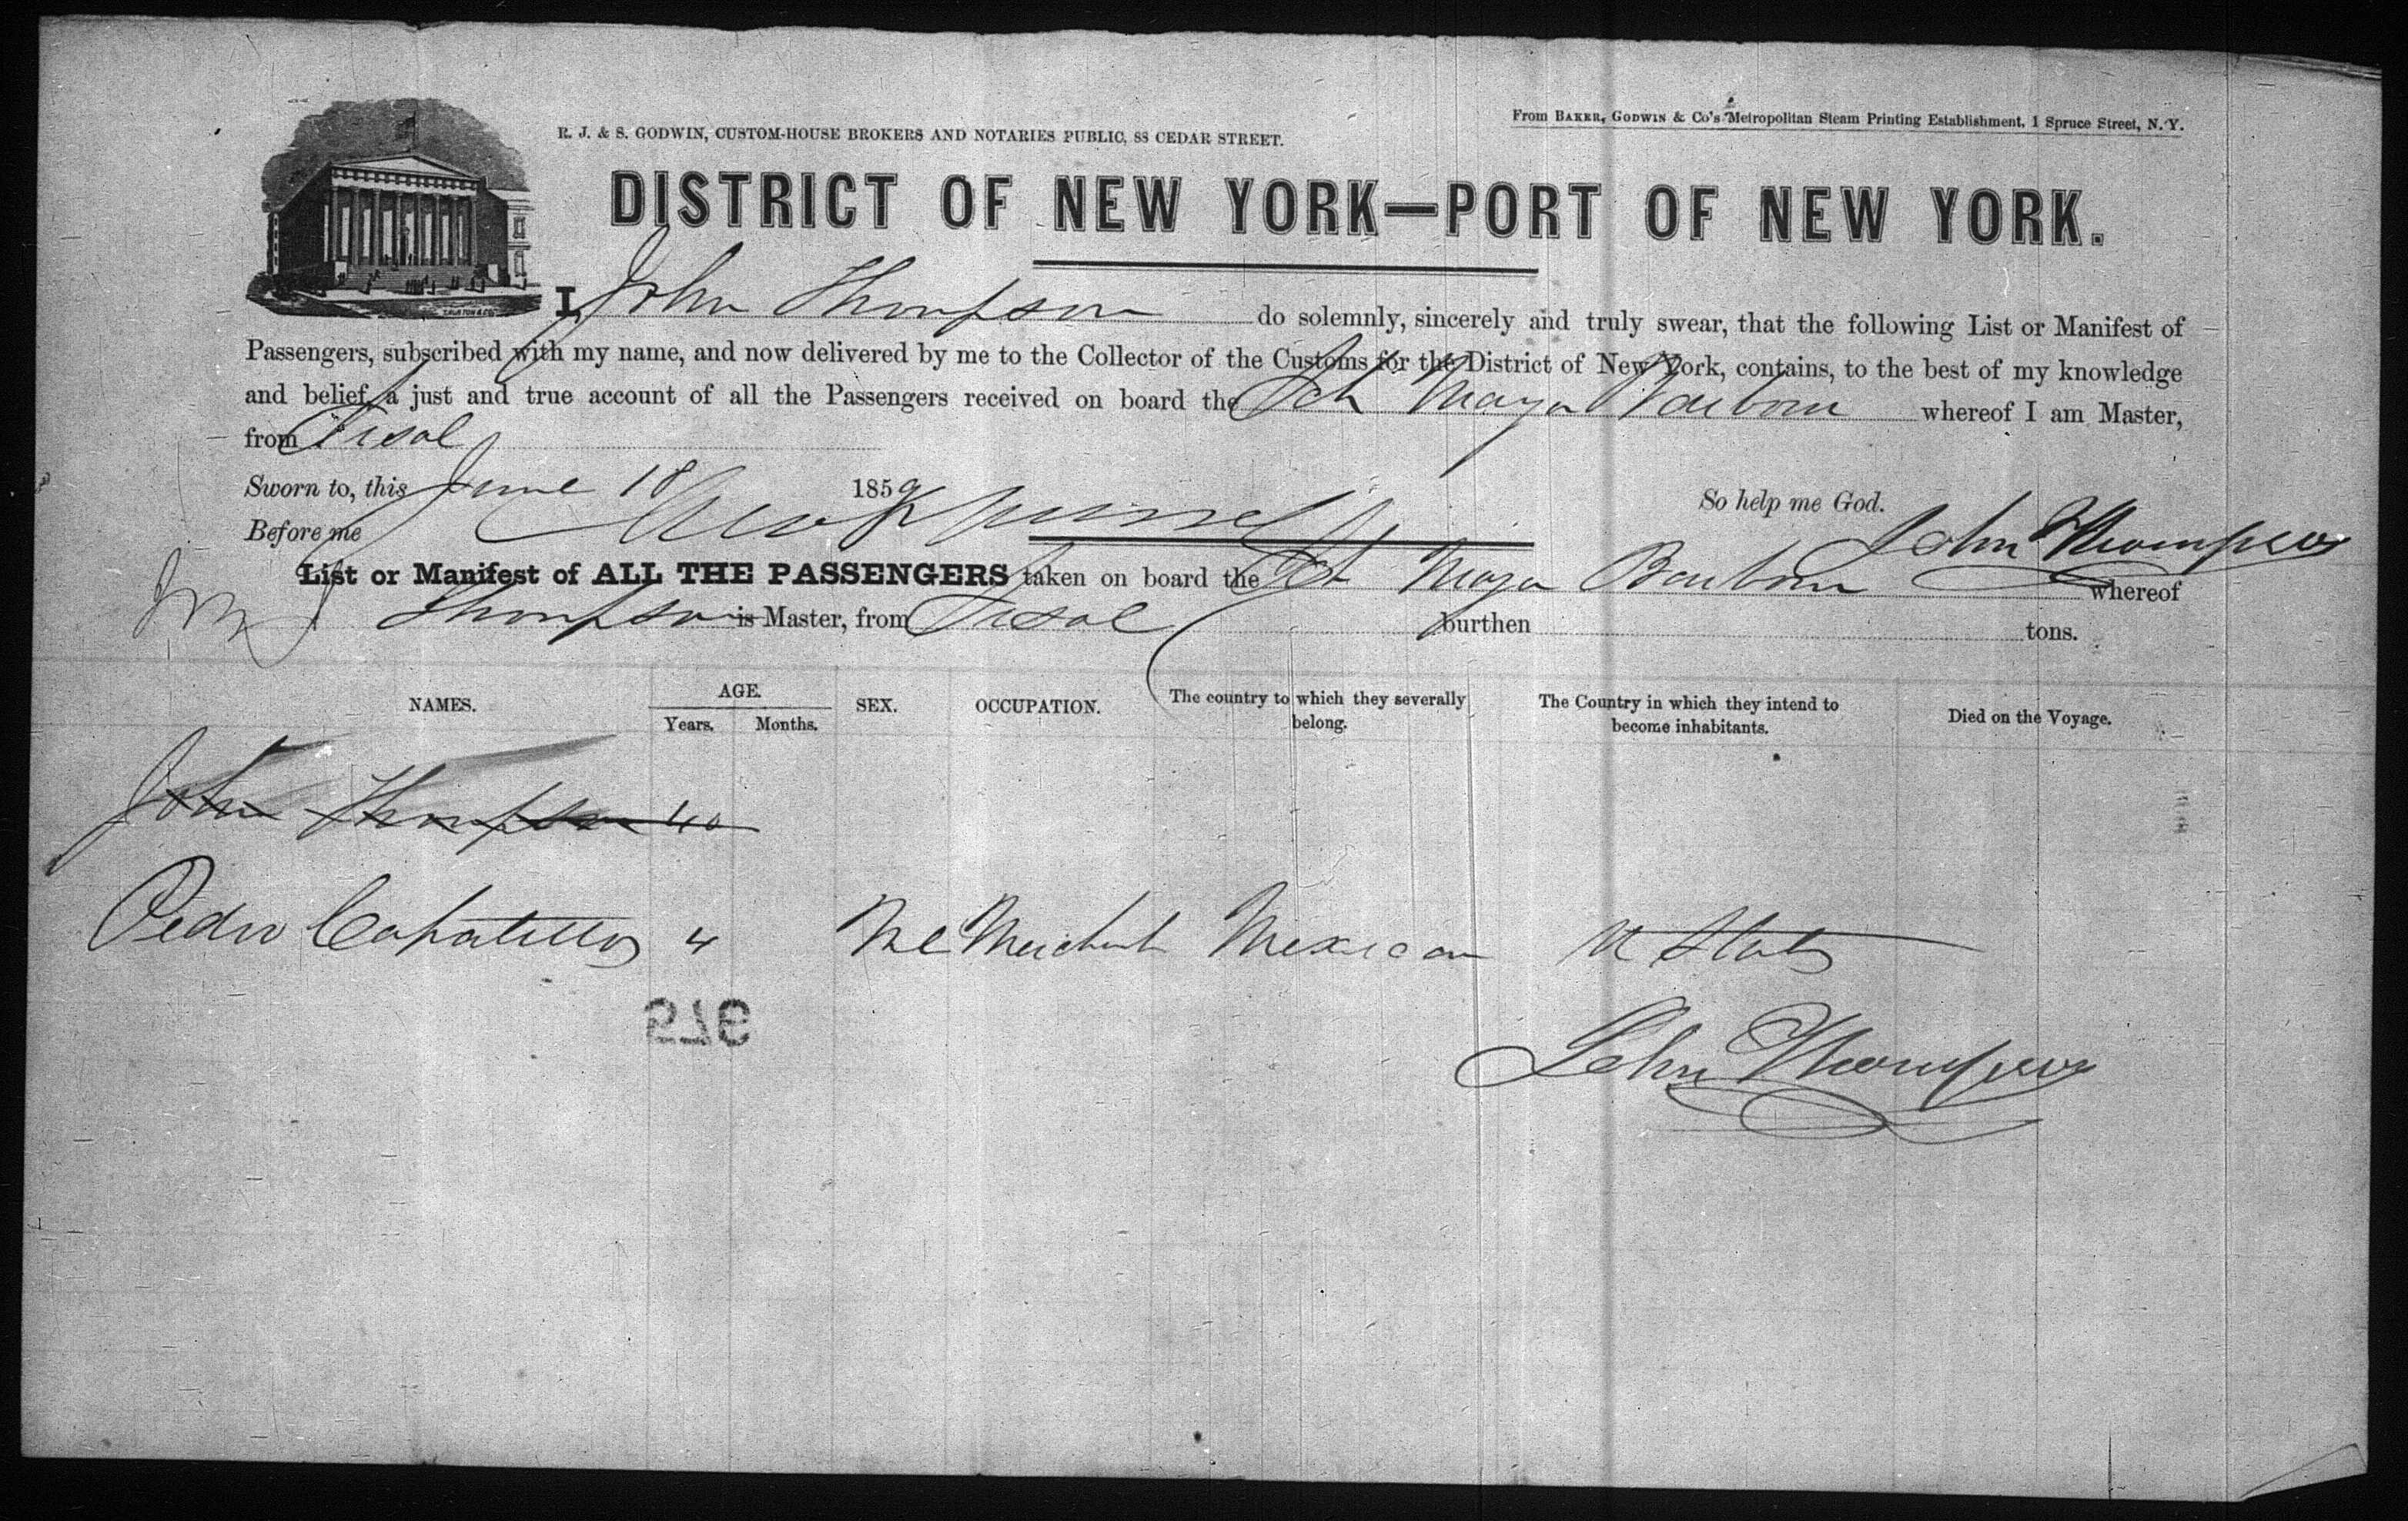 From BAKER, GODWIN & Co's Metropolitan Steam Printing Establishment, 1 Spruce Street, N. Y.
R. J. & S. GODWIN, CUSTOM-HOUSE BROKERS AND NOTARIES PUBLIC, 88 CEDAR STREET.
DISTRICT OF NEW YORK—PORT OF NEW YORK.
I, John Thompson do solemnly, sincerely and truly swear, that the following List or Manifest of
Passengers, subscribed with my name, and now delivered by me to the Collector of the Customs for the District of New York, contains, to the best of my knowledge
and belief, a just and true account of all the Passengers received on board the Sch whereof I am Master,
from Sisal
Sworn to, this June 18 1859
So help me God.
Before me
John Thompson
List or Manifest of ALL THE PASSENGERS taken on board the whereof
Thompson is Master, from Sisal burthen tons.
NAMES. AGE. SEX. OCCUPATION. The country to which they severally belong. The Country in which they intend to become inhabitants. Died on the Voyage.
Years. Months.
John Thompson 40
Pedro 4 Merchant Mexican U States
975
John Thompson